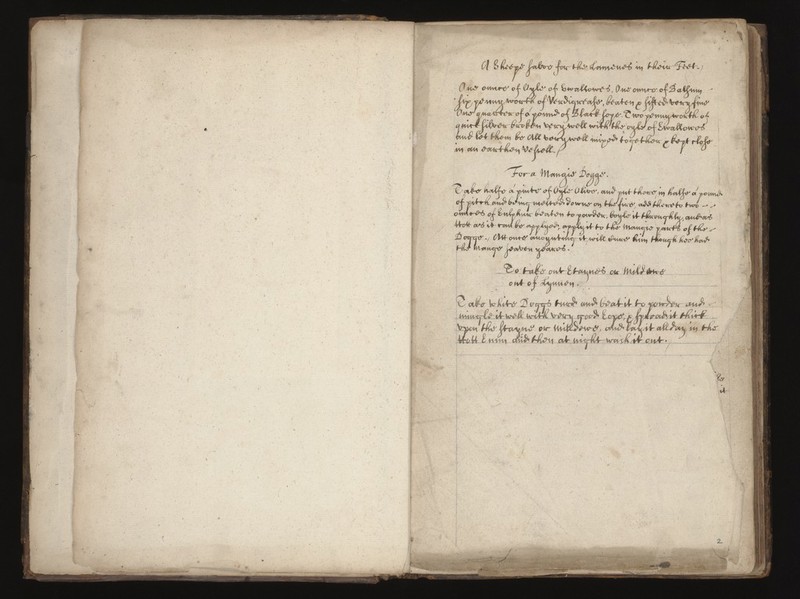 A Sheeps salve for the Lamenes in their Feet.
One ounce of Oyle of Swallowes, One ounce of
Six pennyworth of Verdigrease, beaten & sifted very fine
One quarter of a pound of Black sope. Two pennyworth of
quicksilver broken very well with the oyle of Swallowes
and let them be All very well mixed together & kept close
in an earthen Vessell.
For a Mangie Dogge.
Take halfe a pinte of Oyle Olive, and put therein halfe a pound
of pitch and being melted downe on the fire, add thereto two
ounces of Sulphur beaten to powder, boyle it throughly, and as
Hot as it can be applyed, apply it to the Mangie parts of the
Dogge. Att once anoynting it will cure him though hee had
the Mange seaven yeares.
To take out Staynes or Mildewe
out of Lynnen.
Take white Doggs turd and beat it to powder and
mingle it well with very good Sope, & spread it thick
upon the Stayne or Milldewe, and lay it all day in the
Hott Sunn and then at night wash it out.
it
2